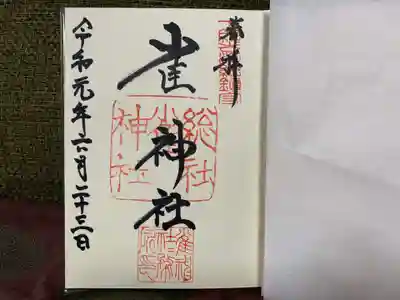 奉拝
雀神社
総社
雀
神社
令和元年六月二十三日